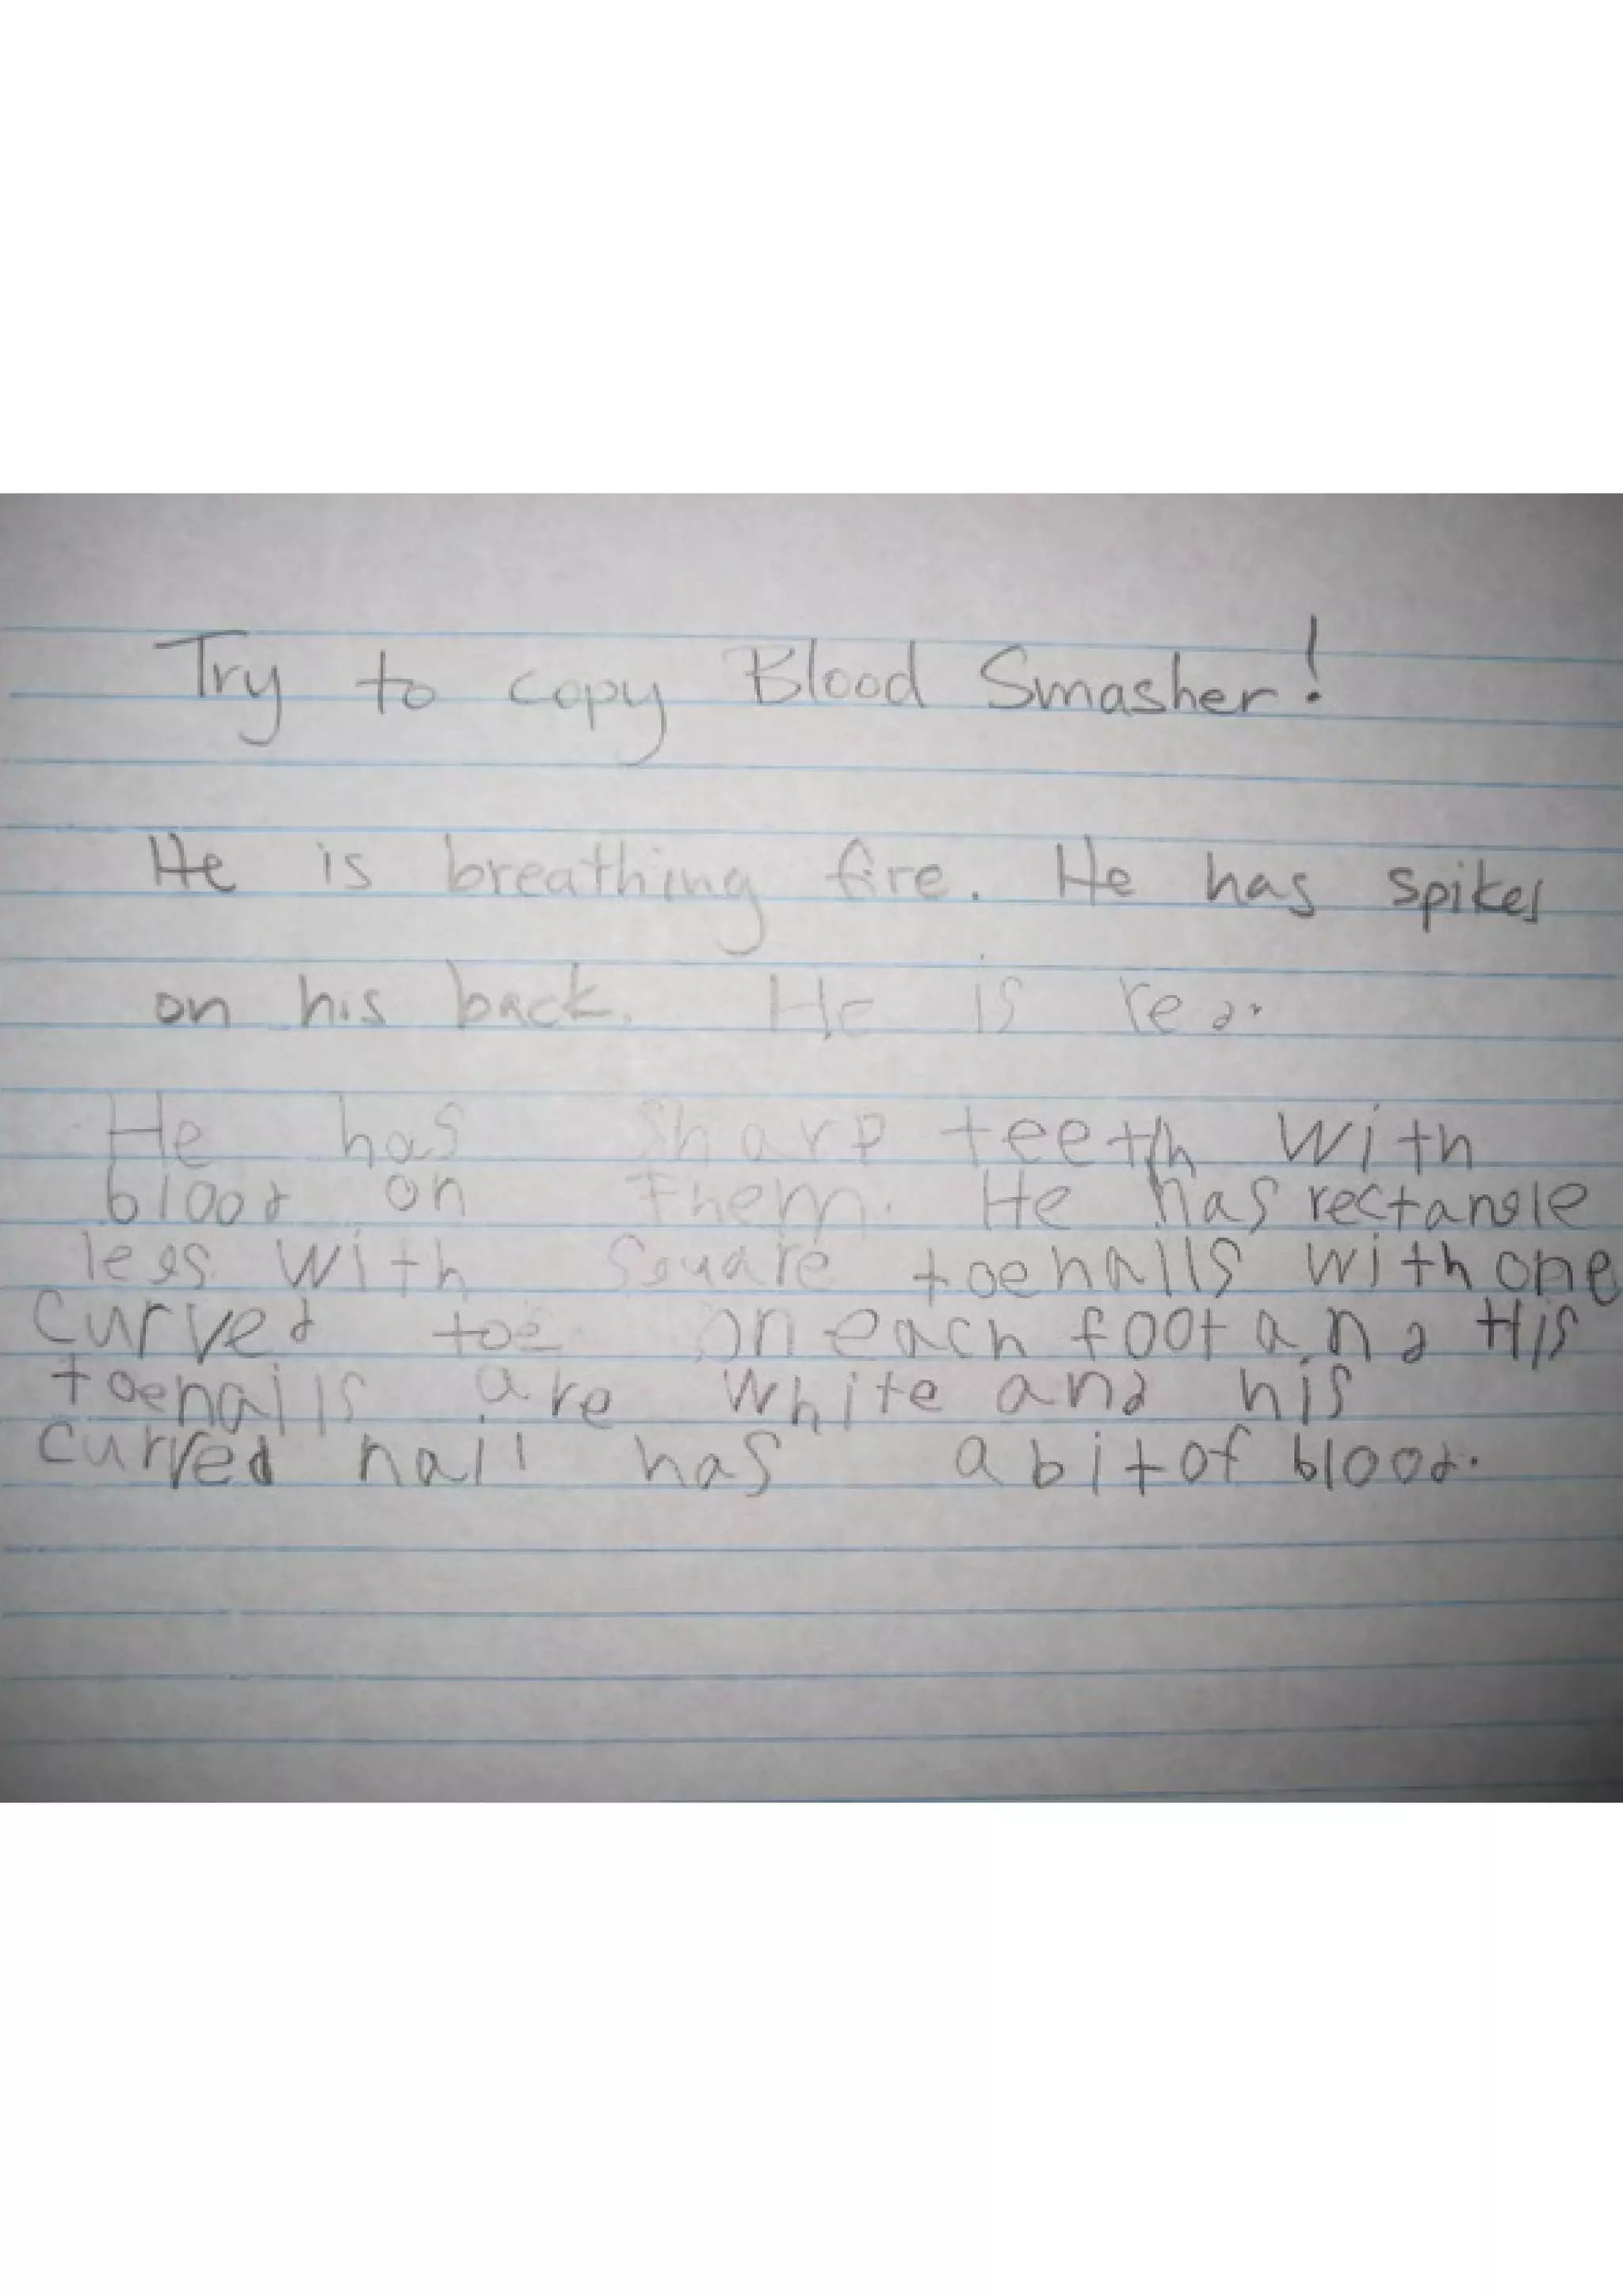 Try to copy Blood Smasher!
He is breathing fire. He has spikes
on his back. He is red.
He has sharp teeth with
blood on them. He has rectangle
legs with square toenails with one
curved toe on each foot and His
toenails are white and his
curved nail has a bit of blood.